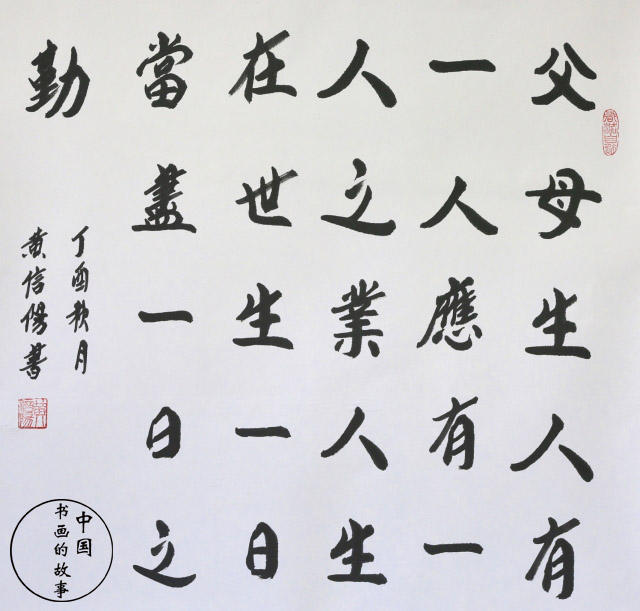 父母生人有
一人應有一
人之業人生
在世生一日
當盡一日之
勤
丁酉秋月
黄信陽書
中国
书画的故事